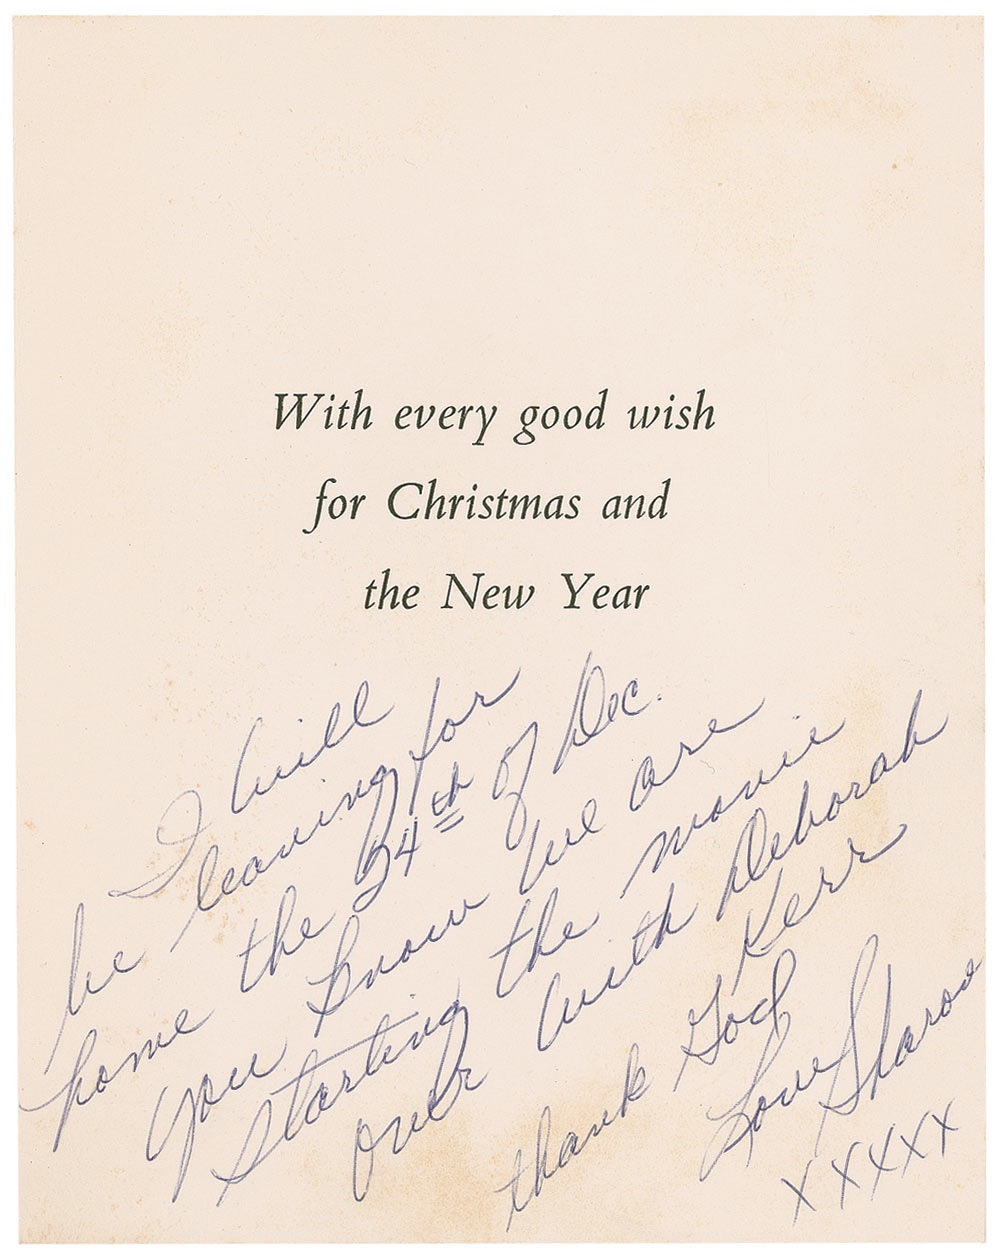 With every good wish
for Christmas and
the New Year
I will
be leaving for
home the 24th of Dec.
you know we are
starting the movie
over with Deborah
Kerr
thank God
Love Sharon
XXXXX